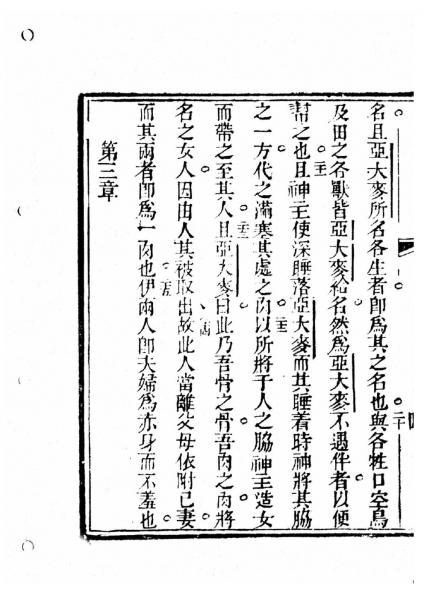 名且亞大麥所名各生者卽爲其之名也與各牲口空鳥
二十
及田之各獸皆亞大麥給名然爲亞大麥不遇伴者以便
幇之也且神主使深睡落亞大麥而其睡着時神將其脇
之一方代之滿塞其處之肉以所將于人之脇神主造女
而帶之至其人且亞大麥曰此乃吾骨之骨吾肉之肉將
名之女人因由人其被取出故此人當離父母依附己妻
而其兩者卽爲一肉也伊兩人卽夫婦爲赤身而不羞也
第三章